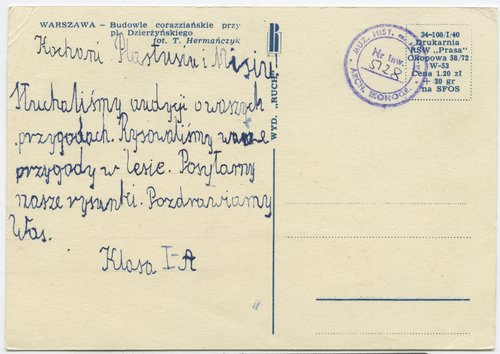 WARSZAWA — Budowle corazziańskie przy
pl. Dzierżyńskiego
fot. T. Hermańczyk
Kochani Plastusiu i Misiu!
Słuchaliśmy audycji o waszych
przygodach. Rysowaliśmy wasze
przygody w lesie. Posyłamy
nasze rysunki. Pozdrawiamy
Was.
Klasa I-A
WYD. „RUCH"
MUZ. HIST. m.
Nr Inw.
5728
ARCH. IKONOGR.
34-108/I/40
Drukarnia
RSW „Prasa"
Okopowa 58/72
W-53
Cena 1.20 zł
+ 20 gr
na SFOS